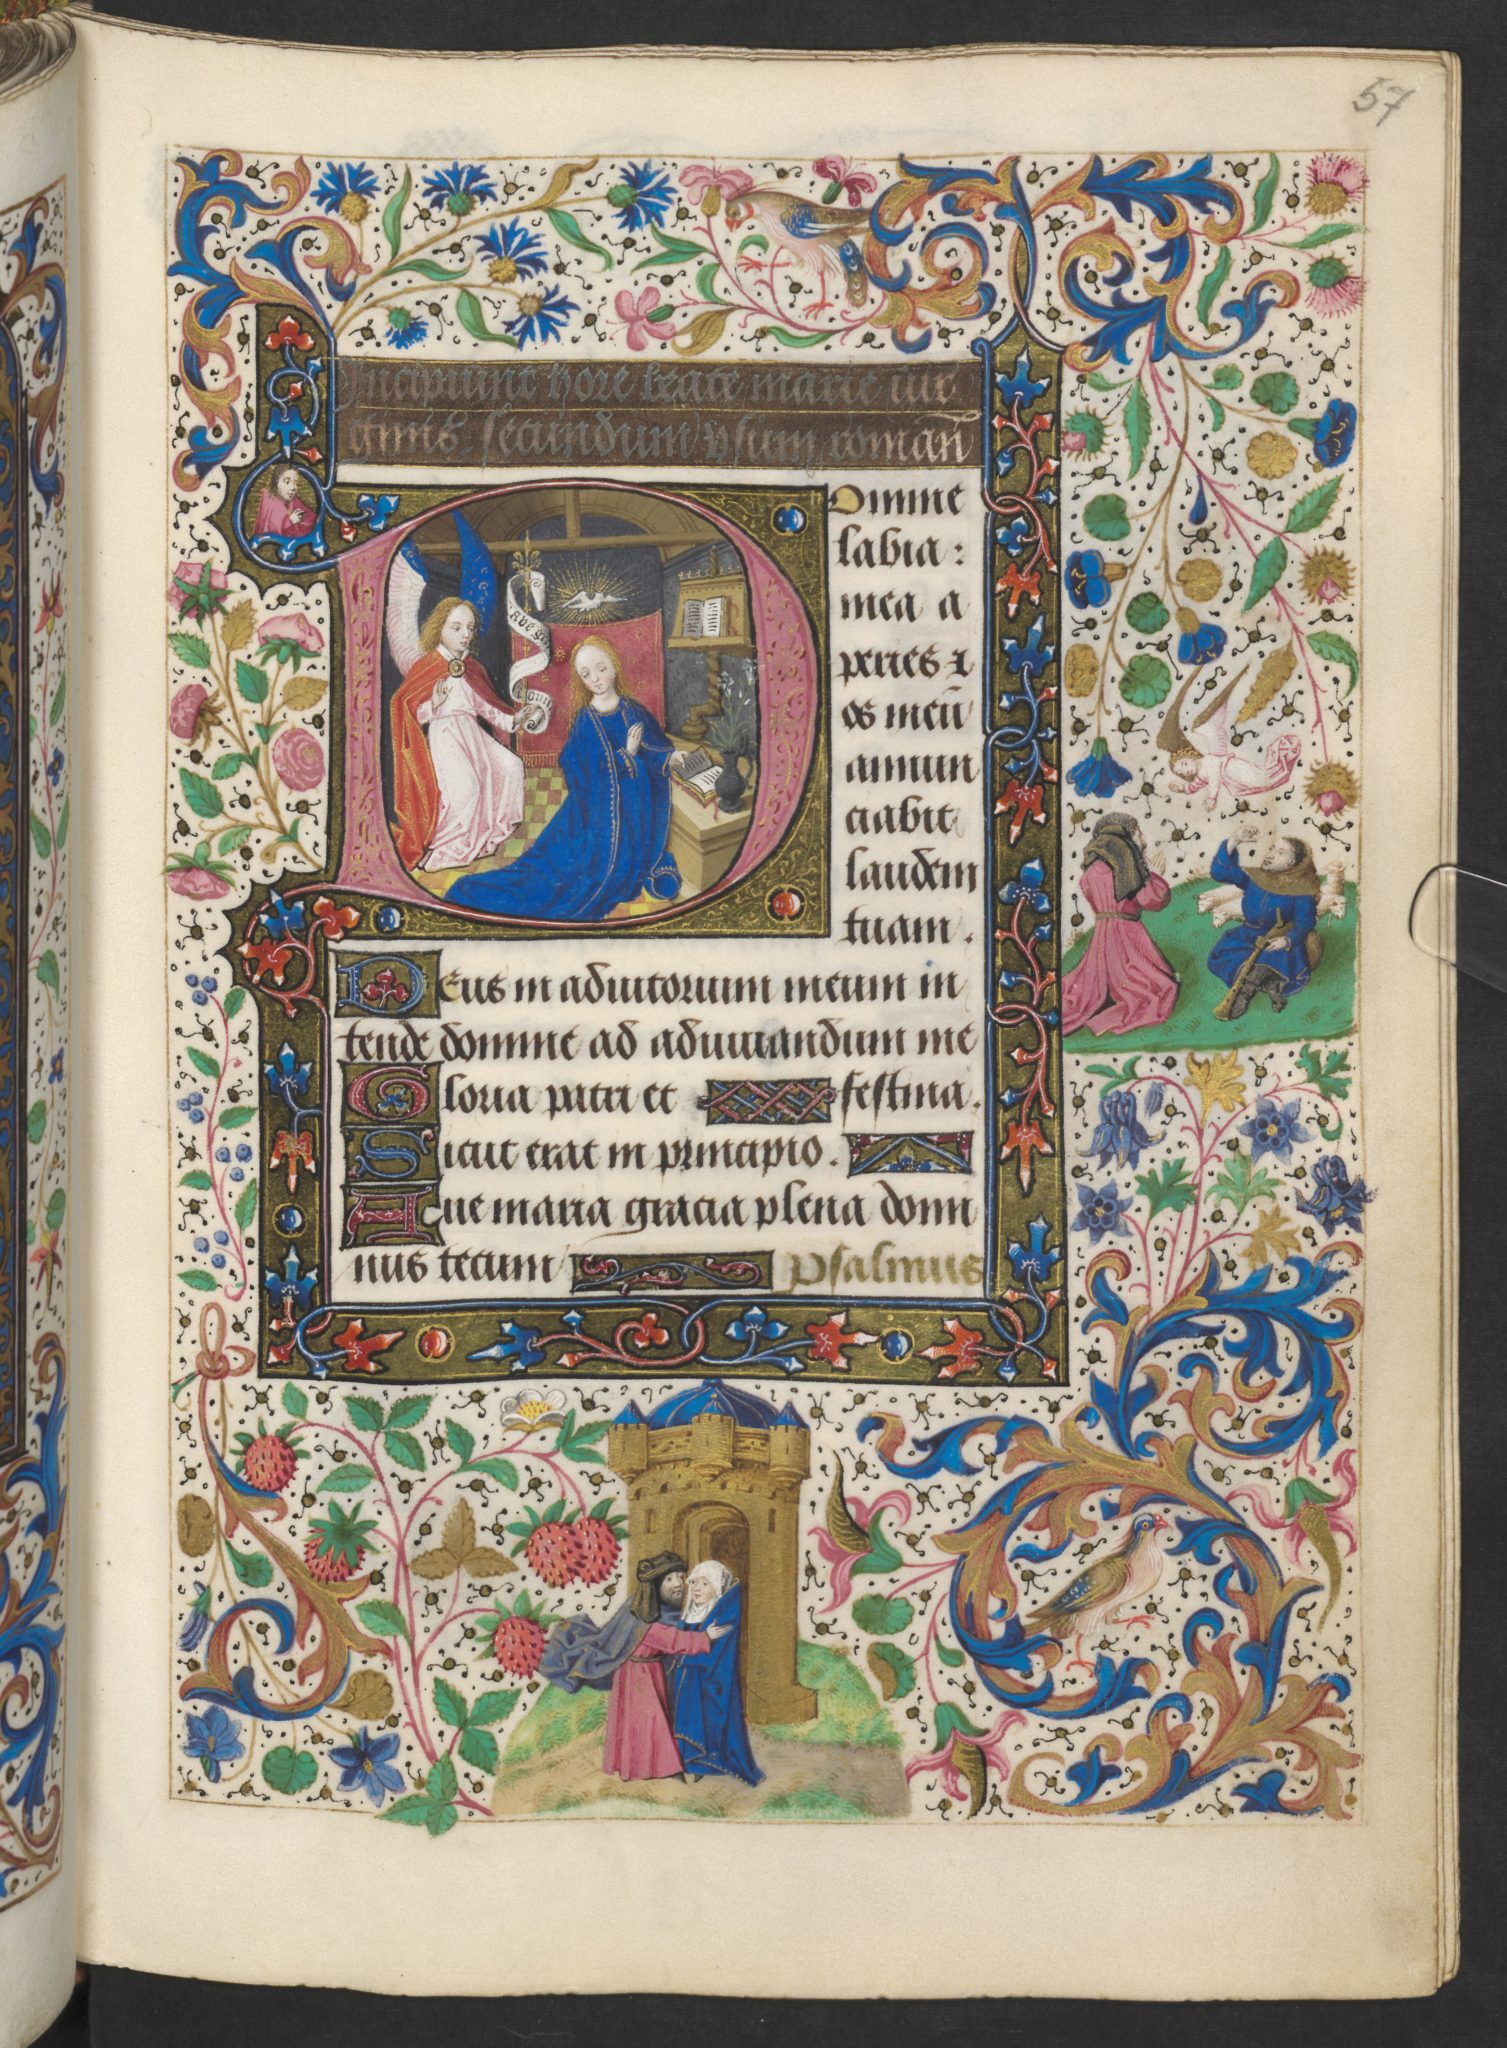 57
Incipiunt hore beate marie vir
ginis. secundum vsum roman̄
Domine
labia:
mea a
peries ⁊
os meū
annun
ciabit
laudem
tuam.
Deus in adiutorium meum in
tende domine ad adiuuandum me
Gloria patri et festina.
Sicut erat in principio.
Aue maria gracia plena domi
nus tecum Psalmus